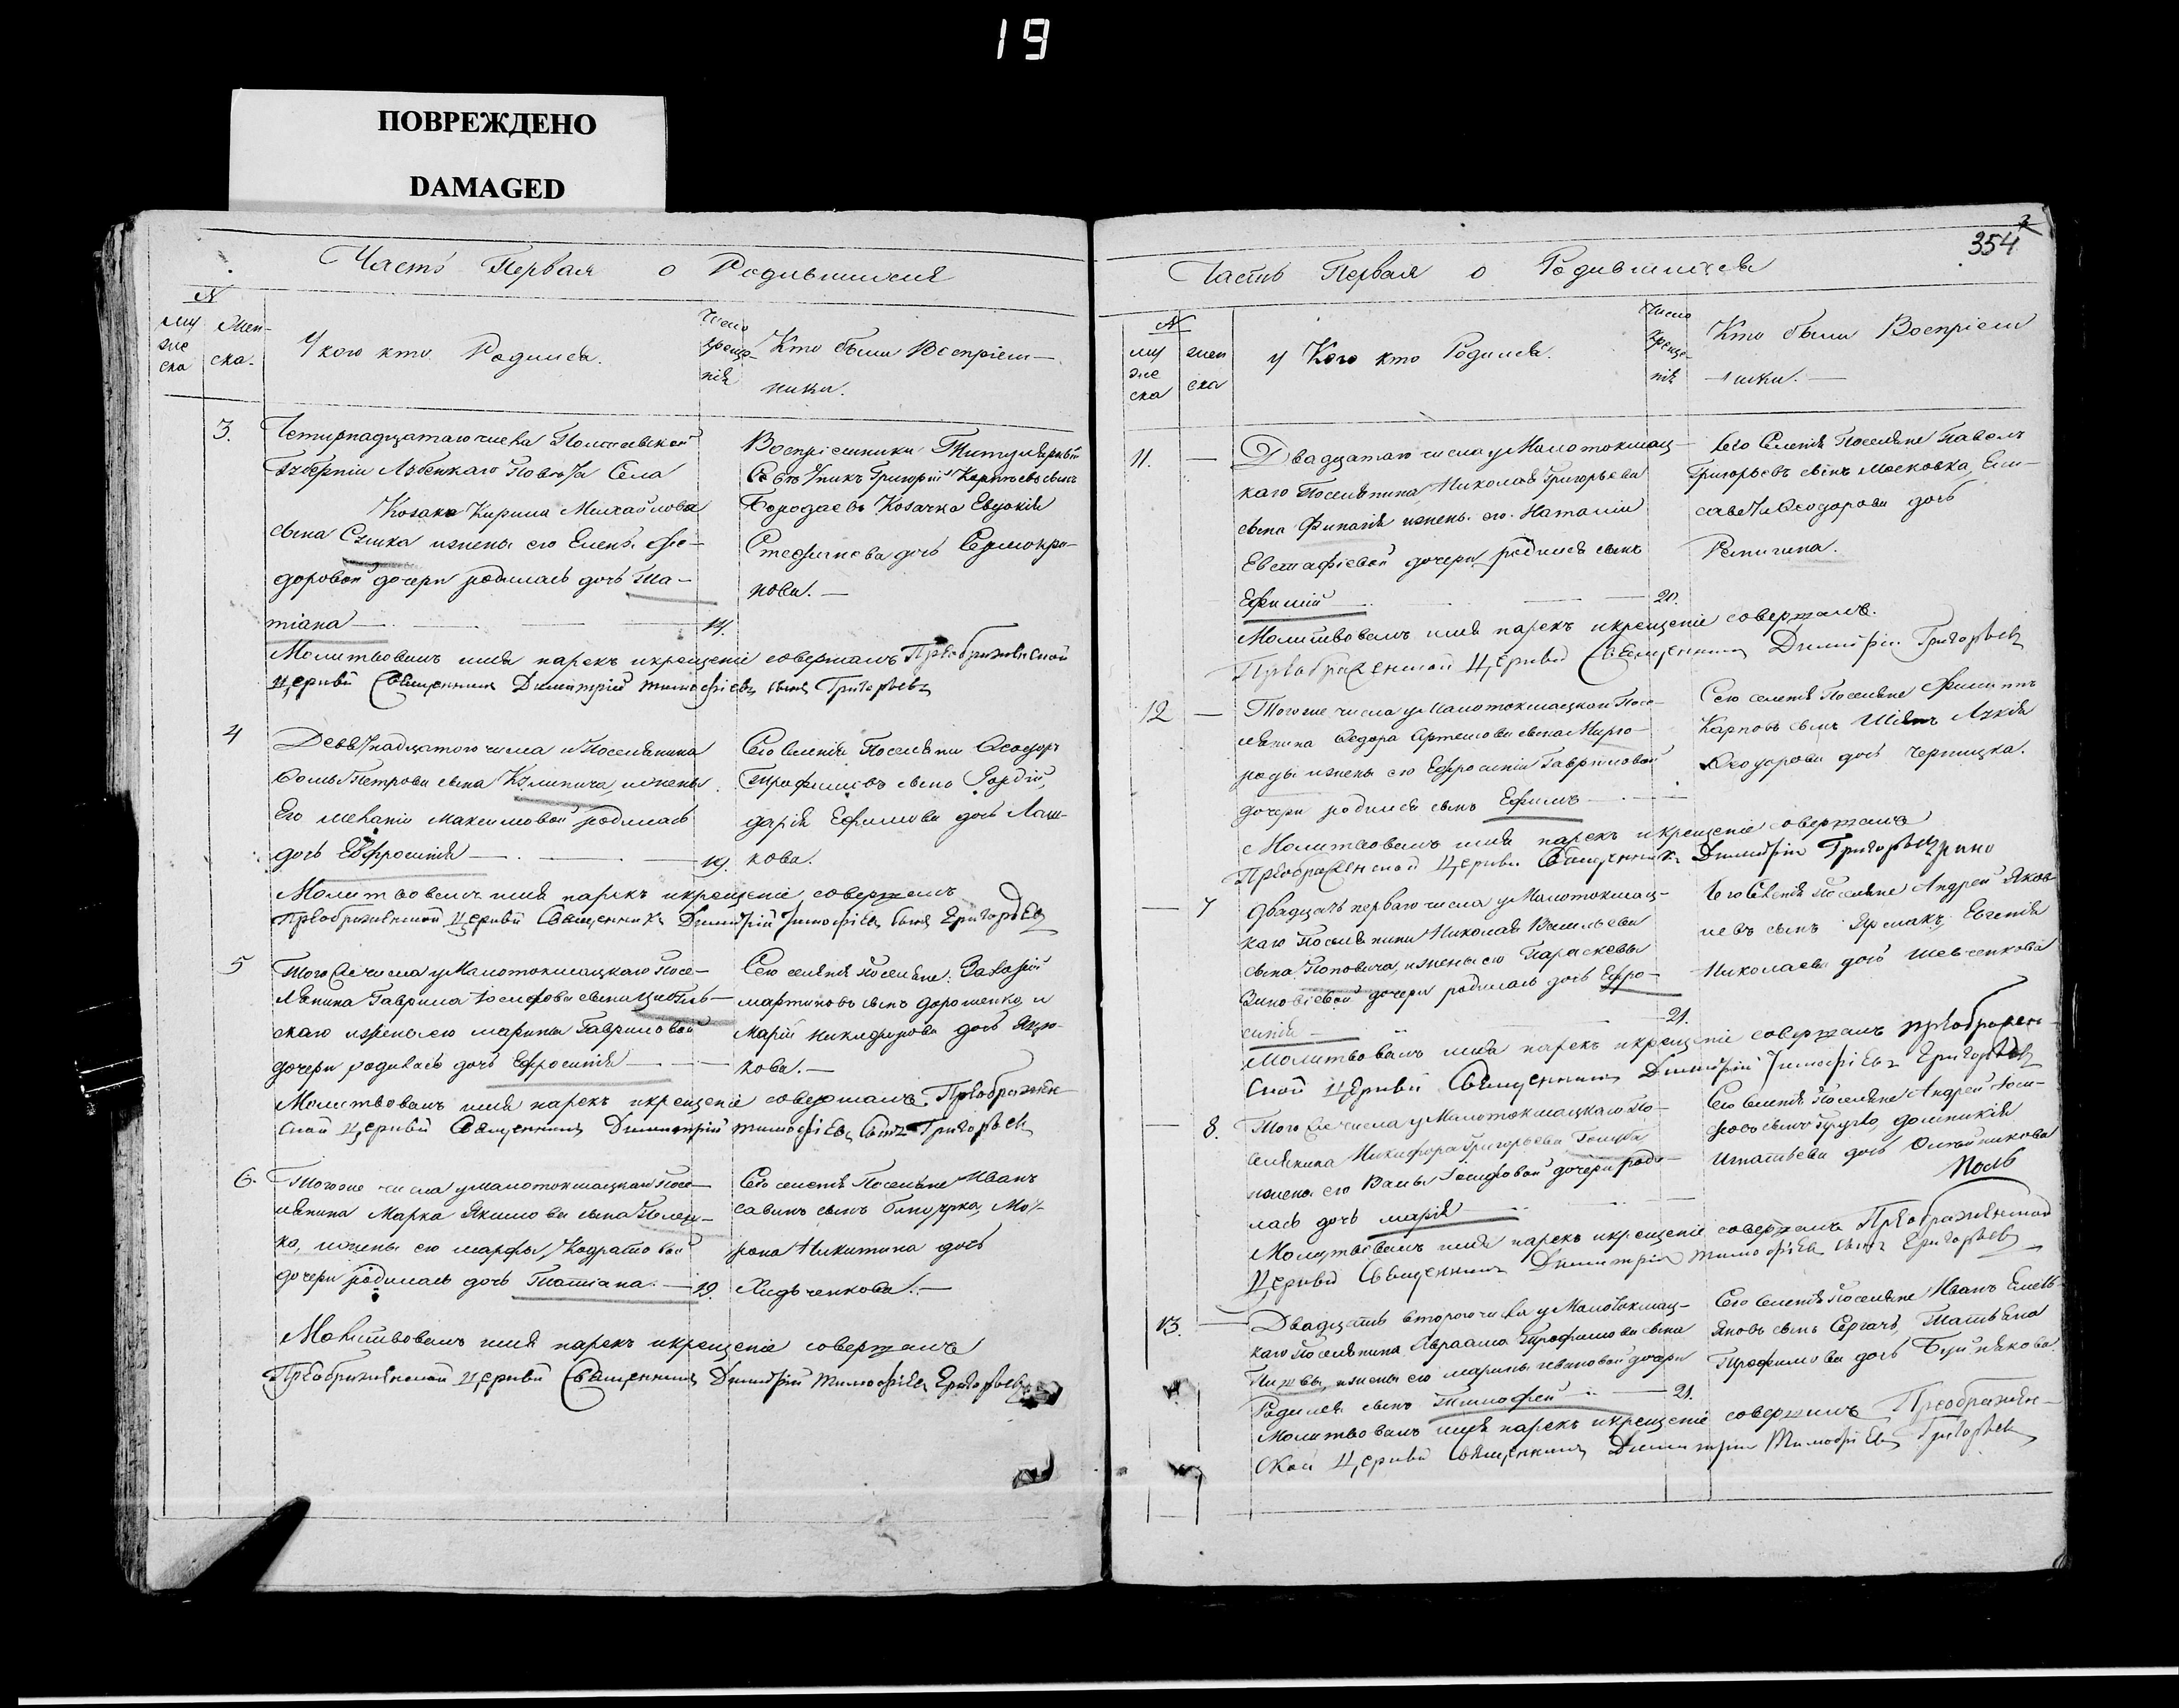 19
ПОВРЕЖДЕНО
DAMAGED
Часть Первая о Родившихся
№
муже ска
Жен-ска.
У кого кто Родился.
Число креще-нія
Кто были Воспріем-
ники.
3.
Четирнадцатаго числа Полтавской
Губерніи Лубенкаго Повѣта Села
Козака Кирила Михайлова
сына изжены его Елены Фе-
доровой дочери родилась дочь Та-
тіана — 14.
Воспріемники Титулярный
Совѣтникъ Григорій сынъ
Бородаевъ Козачка Евдокія
Стефанова дочь
нова. —
Молитвовалъ имя нарекъ икрещеніе совершалъ Преображенской
церкви Священникъ Димитрій Тимофіевъ сынъ Григорьевъ
4
Девятнадцатого числа у Поселянина
Фомы Петрова сына изжены
Его Меланіи Максимовой родилась
дочь Евфросинія — 19.
Сего Селенія Поселяни Феодоръ
Трофимовъ сынъ
дарія Ефимова дочь Лаш-
кова.
Молитвовалъ имя нарекъ икрещеніе совершалъ
Преображенской церкви Священникъ Димитрій Тимофіевъ сынъ Григорьевъ
5
Того же числа у Малотокмацкаго Посе-
лянина Гаврила Іосифова сына
скаго изжены его марины Гавриловой
дочери родилась дочь Ефросинія —
Сего селенія Поселяне: Захарій
мартиновъ сынъ дорошенко, и
Марій никифорова дочь
кова. —
Молитвовалъ имя нарекъ икрещеніе совершалъ Преображен-
ской церкви Священникъ Димитрій Тимофіевъ сынъ Григорьевъ
6.
Тогоже числа у Малотокмацкаго Посе-
лянина Марка Якимова сына
ко, изжены его марфы, Кодратовой
дочери родилась дочь Татіана. — 19.
Сего селенія Поселяне Иванъ
савинъ сынъ
рона Никитина дочь
Молитвовалъ имя нарекъ икрещеніе совершалъ
Преображенской церкви Священникъ Димитрій Тимофіевъ Григорьевъ
354
Часть Первая о Родившихся
№
муже ска
жен ска
у Кого кто Родился.
Число Креще-нія
Кто были Воспріем
ники. —
11. —
Двадцатаго числа у Малотокмац-
каго Поселянина Николая Григорьева
сына изжены его Наталіи
Евстафіевой дочери родился сынъ
Ефимій — 20.
Сего Селенія Поселяне Павелъ
Григорьевъ сынъ Московка, Ели-
савета Феодорова дочь
Молитвовалъ имя нарекъ икрещеніе совершалъ.
Преображенской Церкви Священникъ Димитрій Григорьевъ
12 —
Тогоже числа у Малотокмацкаго Посе-
лянина Федора Артемова сына
изжены его Ефросиніи Гавриловой
дочери родился сынъ Ефимъ —
Сего селенія Поселяне Филиппъ
Карповъ сынъ
Феодорова дочь Черницка.
Молитвовалъ имя нарекъ икрещеніе совершалъ
Преображенской Церкви Священникъ Димитрій Григорьевъ
— 7
Двадцать перваго числа у Малотокмац-
каго Поселянина Николая Васильева
сына Поповича, изжены его Параскевы
Зиновіевой дочери родилась дочь Ефро-
синія — 21.
Сего Селенія Поселяне Андрей Яков
левъ сынъ Ярмакъ; Евгенія
Николаева дочь Шевченкова
Молитвовалъ имя нарекъ икрещеніе совершалъ Преображен-
ской церкви Священникъ Димитрій Тимофіевъ Григорьевъ
— 8.
Того же числа у Малотокмацкаго По-
селянина Никифора Григорьева
изжены его Іосифовой дочери роди-
лась дочь марія —
Сего Селенія Поселяне Андрей Іоси-
фовъ сынъ домникія
Игнатьева дочь Олейникова
Молитвовалъ имя нарекъ икрещеніе совершалъ Преображенской
Церкви Священникъ Димитрій Тимофіевъ сынъ Григорьевъ
13. —
Двадцать второго числа у Малотокмац-
каго Поселянина Авраама Трофимова сына
изжены его марины ивановой дочери
Родился сынъ Тимофей — 21.
Сего Селенія Поселяне Иванъ Емель-
яновъ сынъ Сергачъ, Татьяна
Трофимова дочь
Молитвовалъ имя нарекъ икрещеніе совершилъ Преображен-
ской Церкви Священникъ Димитрій Тимофіевъ Григорьевъ